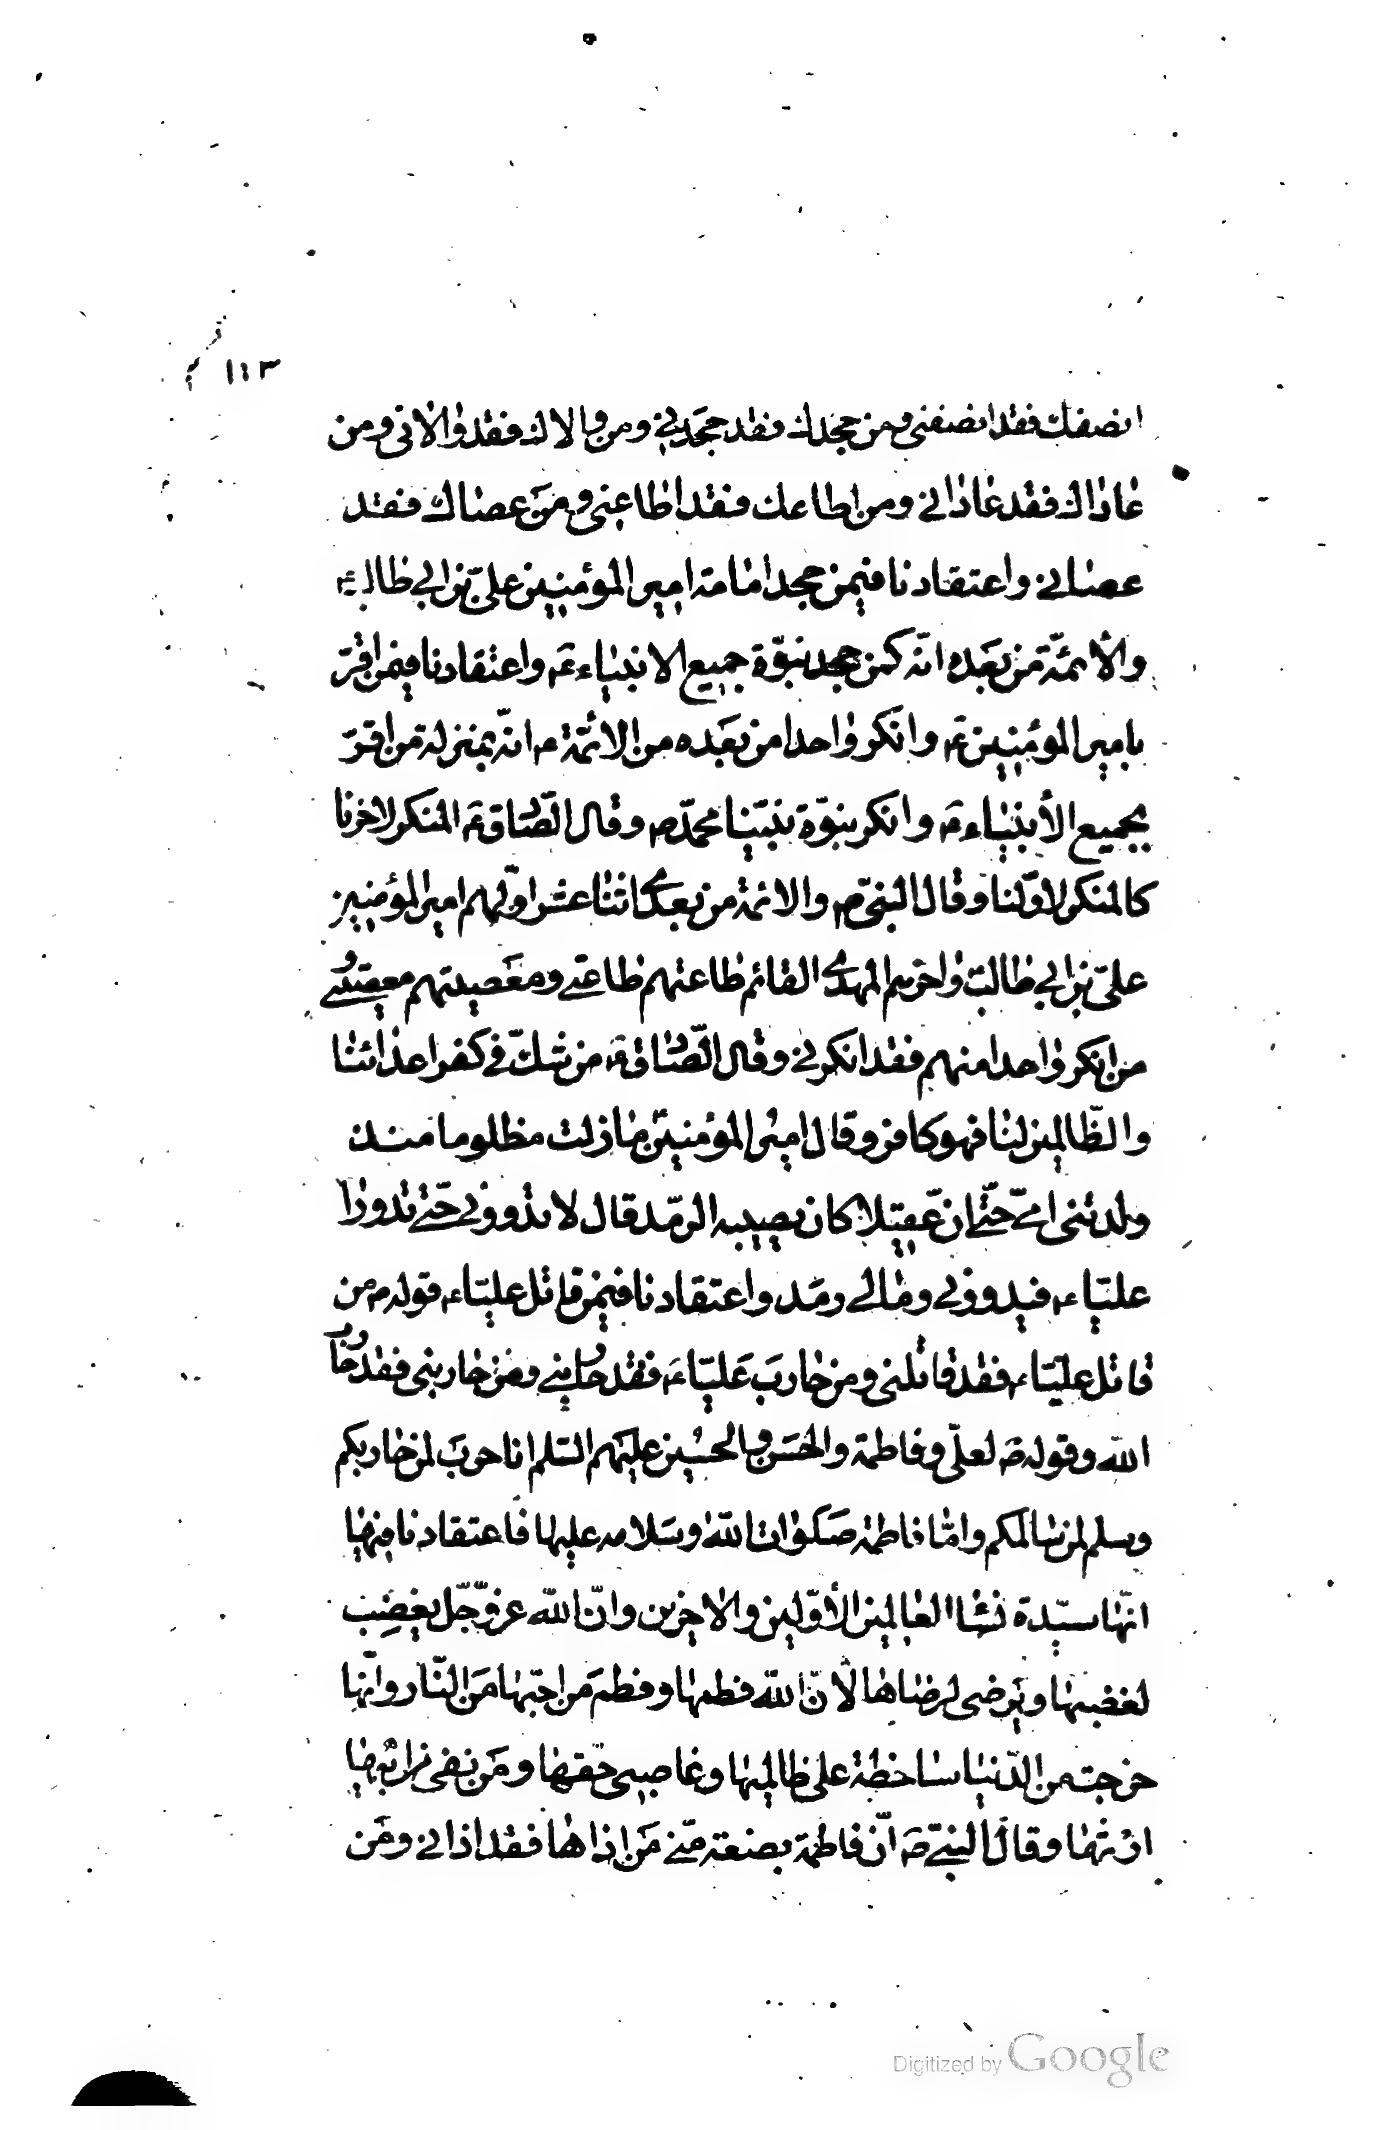 ١١٣
انصفك فقد انصفنى ومن جحدك فقد جحدنى ومن والاك فقد والانى ومن
عاداك فقد عادانى ومن اطاعك فقد اطاعنى ومن عصاك فقد
عصانى واعتقادنا فيمن جحد امامة امير المؤمنين علىّ بن ابى طالب ع
والأئمّة من بعده انّه كمن جحد نبوّة جميع الانبياء ع واعتقادنا فيمن اقرّ
بامير المؤمنين ع وانكر واحدا من بعده من الائمّة ع انّه بمنزلة من اقرّ
بجميع الأنبياء ع وانكر بنوّة نبيّنا محمّد ص وقال الصّادق ع المنكر لاخرنا
كالمنكر لاوّلنا وقال النبىّ ص والائمة من بعدى اثنا عشر اوّلهم امير المؤمنين
علىّ بن ابى طالب واخرهم المهدى القائم طاعتهم طاعتى ومعصيتهم معصيتى
من انكر واحدا منهم فقد انكرنى وقال الصّادق ع من شكّ فى كفر اعدائنا
والظّالمين لنا فهو كافر وقال امير المؤمنين ما زلت مظلوما منذ
ولدتنى امّى حتّى انّ عقيلا كان يصيبه الرمد قال لا تذرونى حتّى تذروا
عليّا ع فيذرونى ومالى رمد واعتقادنا فيمن قاتل عليّا ع قوله ص من
قاتل عليّا ع فقد قاتلنى ومن حارب عليّا ع فقد حاربنى ومن حاربنى فقد حارب
اللّه وقوله ص لعلىّ وفاطمة والحسن والحسين عليهم السّلم انا حرب لمن حاربكم
وسلم لمن سالمكم وامّا فاطمة صلوات اللّه وسلامه عليها فاعتقادنا فيها
انّها سيّدة نساء العالمين الأوّلين والاخرين وانّ اللّه عزّ وجلّ يغضب
لغضبها ويرضى لرضاها لأنّ اللّه فطمها وفطم من احبّها من النّار وانّها
خرجت من الدّنيا ساخطة على ظالميها وغاصبى حقّها ومن نفى من ابيها
ارثها وقال النبىّ ص انّ فاطمة بضعة منّى من اذاها فقد اذانى ومن
Digitized by Google